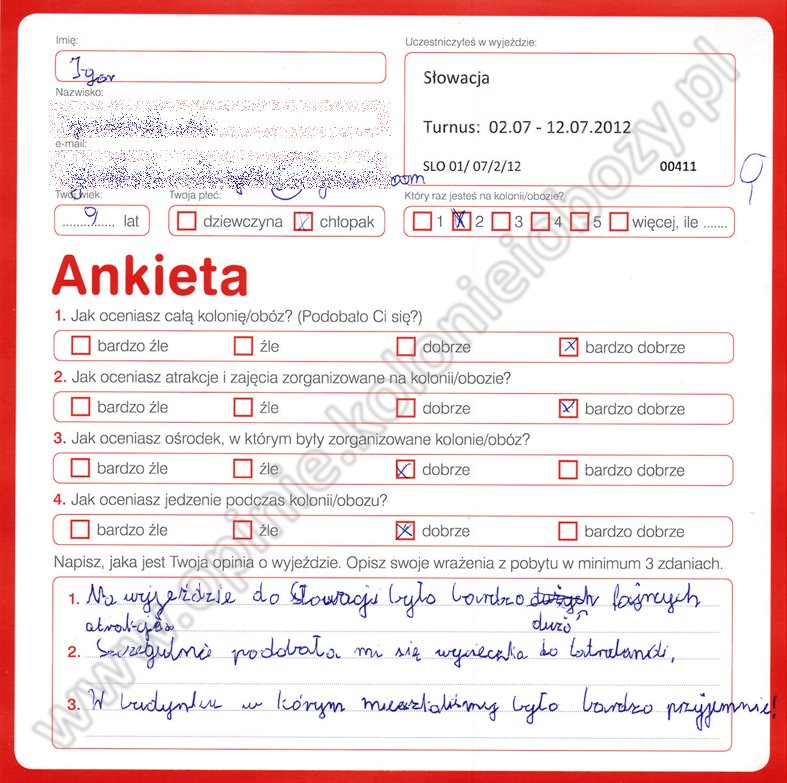 Imię:
Igor
Uczestniczyłeś w wyjeździe:
Słowacja
Turnus: 02.07 - 12.07.2012
SLO 01/ 07/2/12 00411
Nazwisko:
e-mail:
com
9
Twój wiek:
9 lat
Twoja płeć:
dziewczyna chłopak
Który raz jesteś na kolonii/obozie?
1 2 3 4 5 więcej, ile .......
Ankieta
1. Jak oceniasz całą kolonię/obóz? (Podobało Ci się?)
bardzo źle źle dobrze bardzo dobrze
2. Jak oceniasz atrakcje i zajęcia zorganizowane na kolonii/obozie?
bardzo źle źle dobrze bardzo dobrze
3. Jak oceniasz ośrodek, w którym były zorganizowane kolonie/obóz?
bardzo źle źle dobrze bardzo dobrze
4. Jak oceniasz jedzenie podczas kolonii/obozu?
bardzo źle źle dobrze bardzo dobrze
Napisz, jaka jest Twoja opinia o wyjeździe. Opisz swoje wrażenia z pobytu w minimum 3 zdaniach.
1. Na wyjeździe do Słowacji było bardzo dużo fajnych
2. Szczegulnie podobała mi się wycieczka do
3. W budynku w kórym mieszkaliśmy było bardzo przyjemnie!
www.opinie.kolonieiobozy.pl